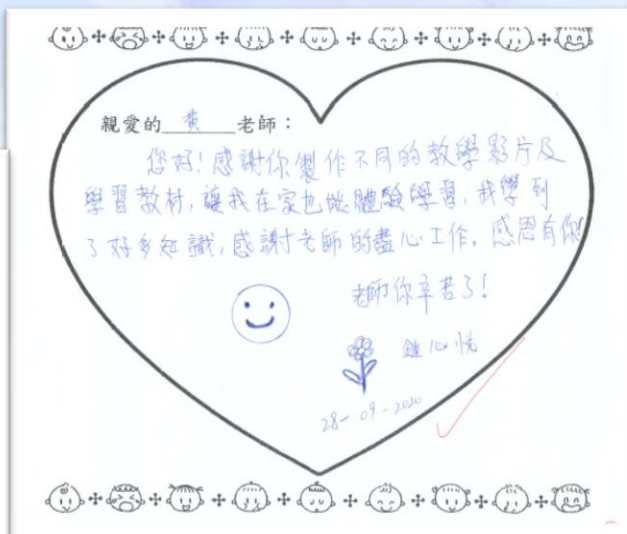 親愛的 黄 老師：
您好！感謝你製作不同的教學影片及
學習教材，讓我在家也能體驗學習，我學到
了好多知識，感謝老師的盡心工作，感恩有你
老師你辛苦了！
鍾心悅
28-09-2020